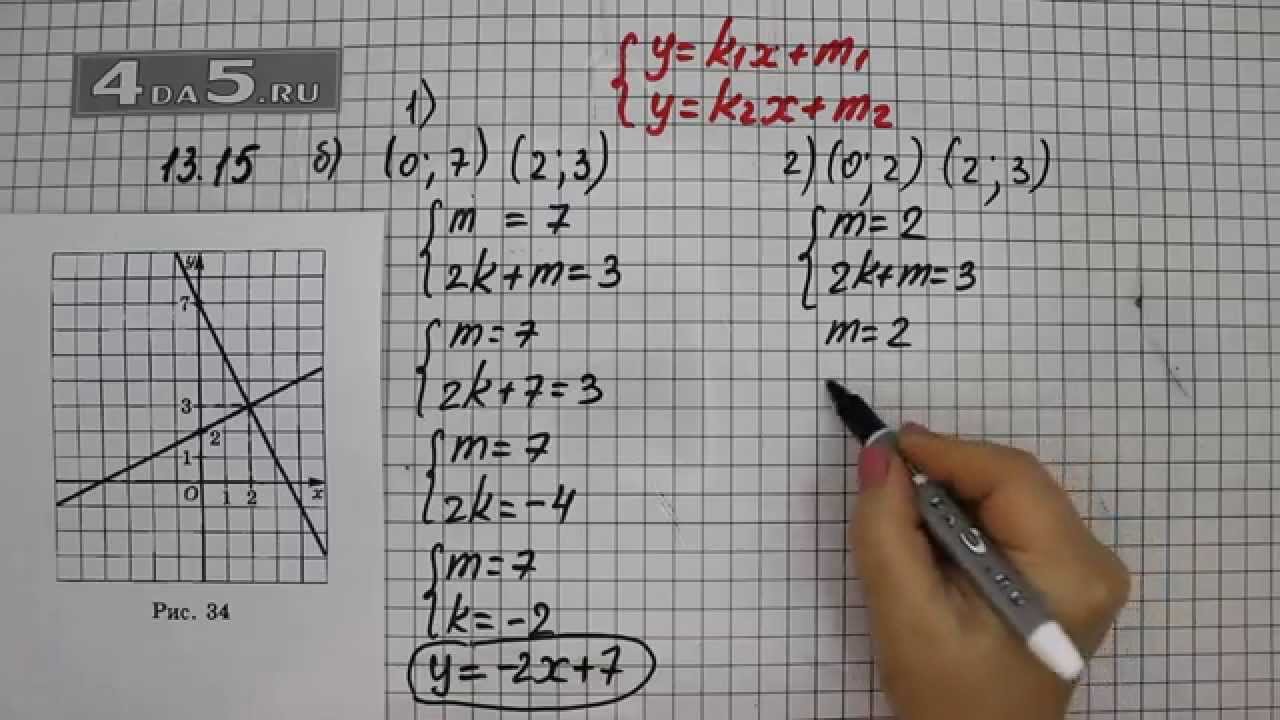 4DA5.RU
y=k₁x+m₁
y=k₂x+m₂
13.15 б)
1)
(0;7) (2;3)
m = 7
2k+m=3
m=7
2k+7=3
m=7
2k=-4
m=7
k=-2
y=-2x+7
2) (0;2) (2;3)
m=2
2k+m=3
m=2
y
7
3
2
1
O 1 2 x
Рис. 34